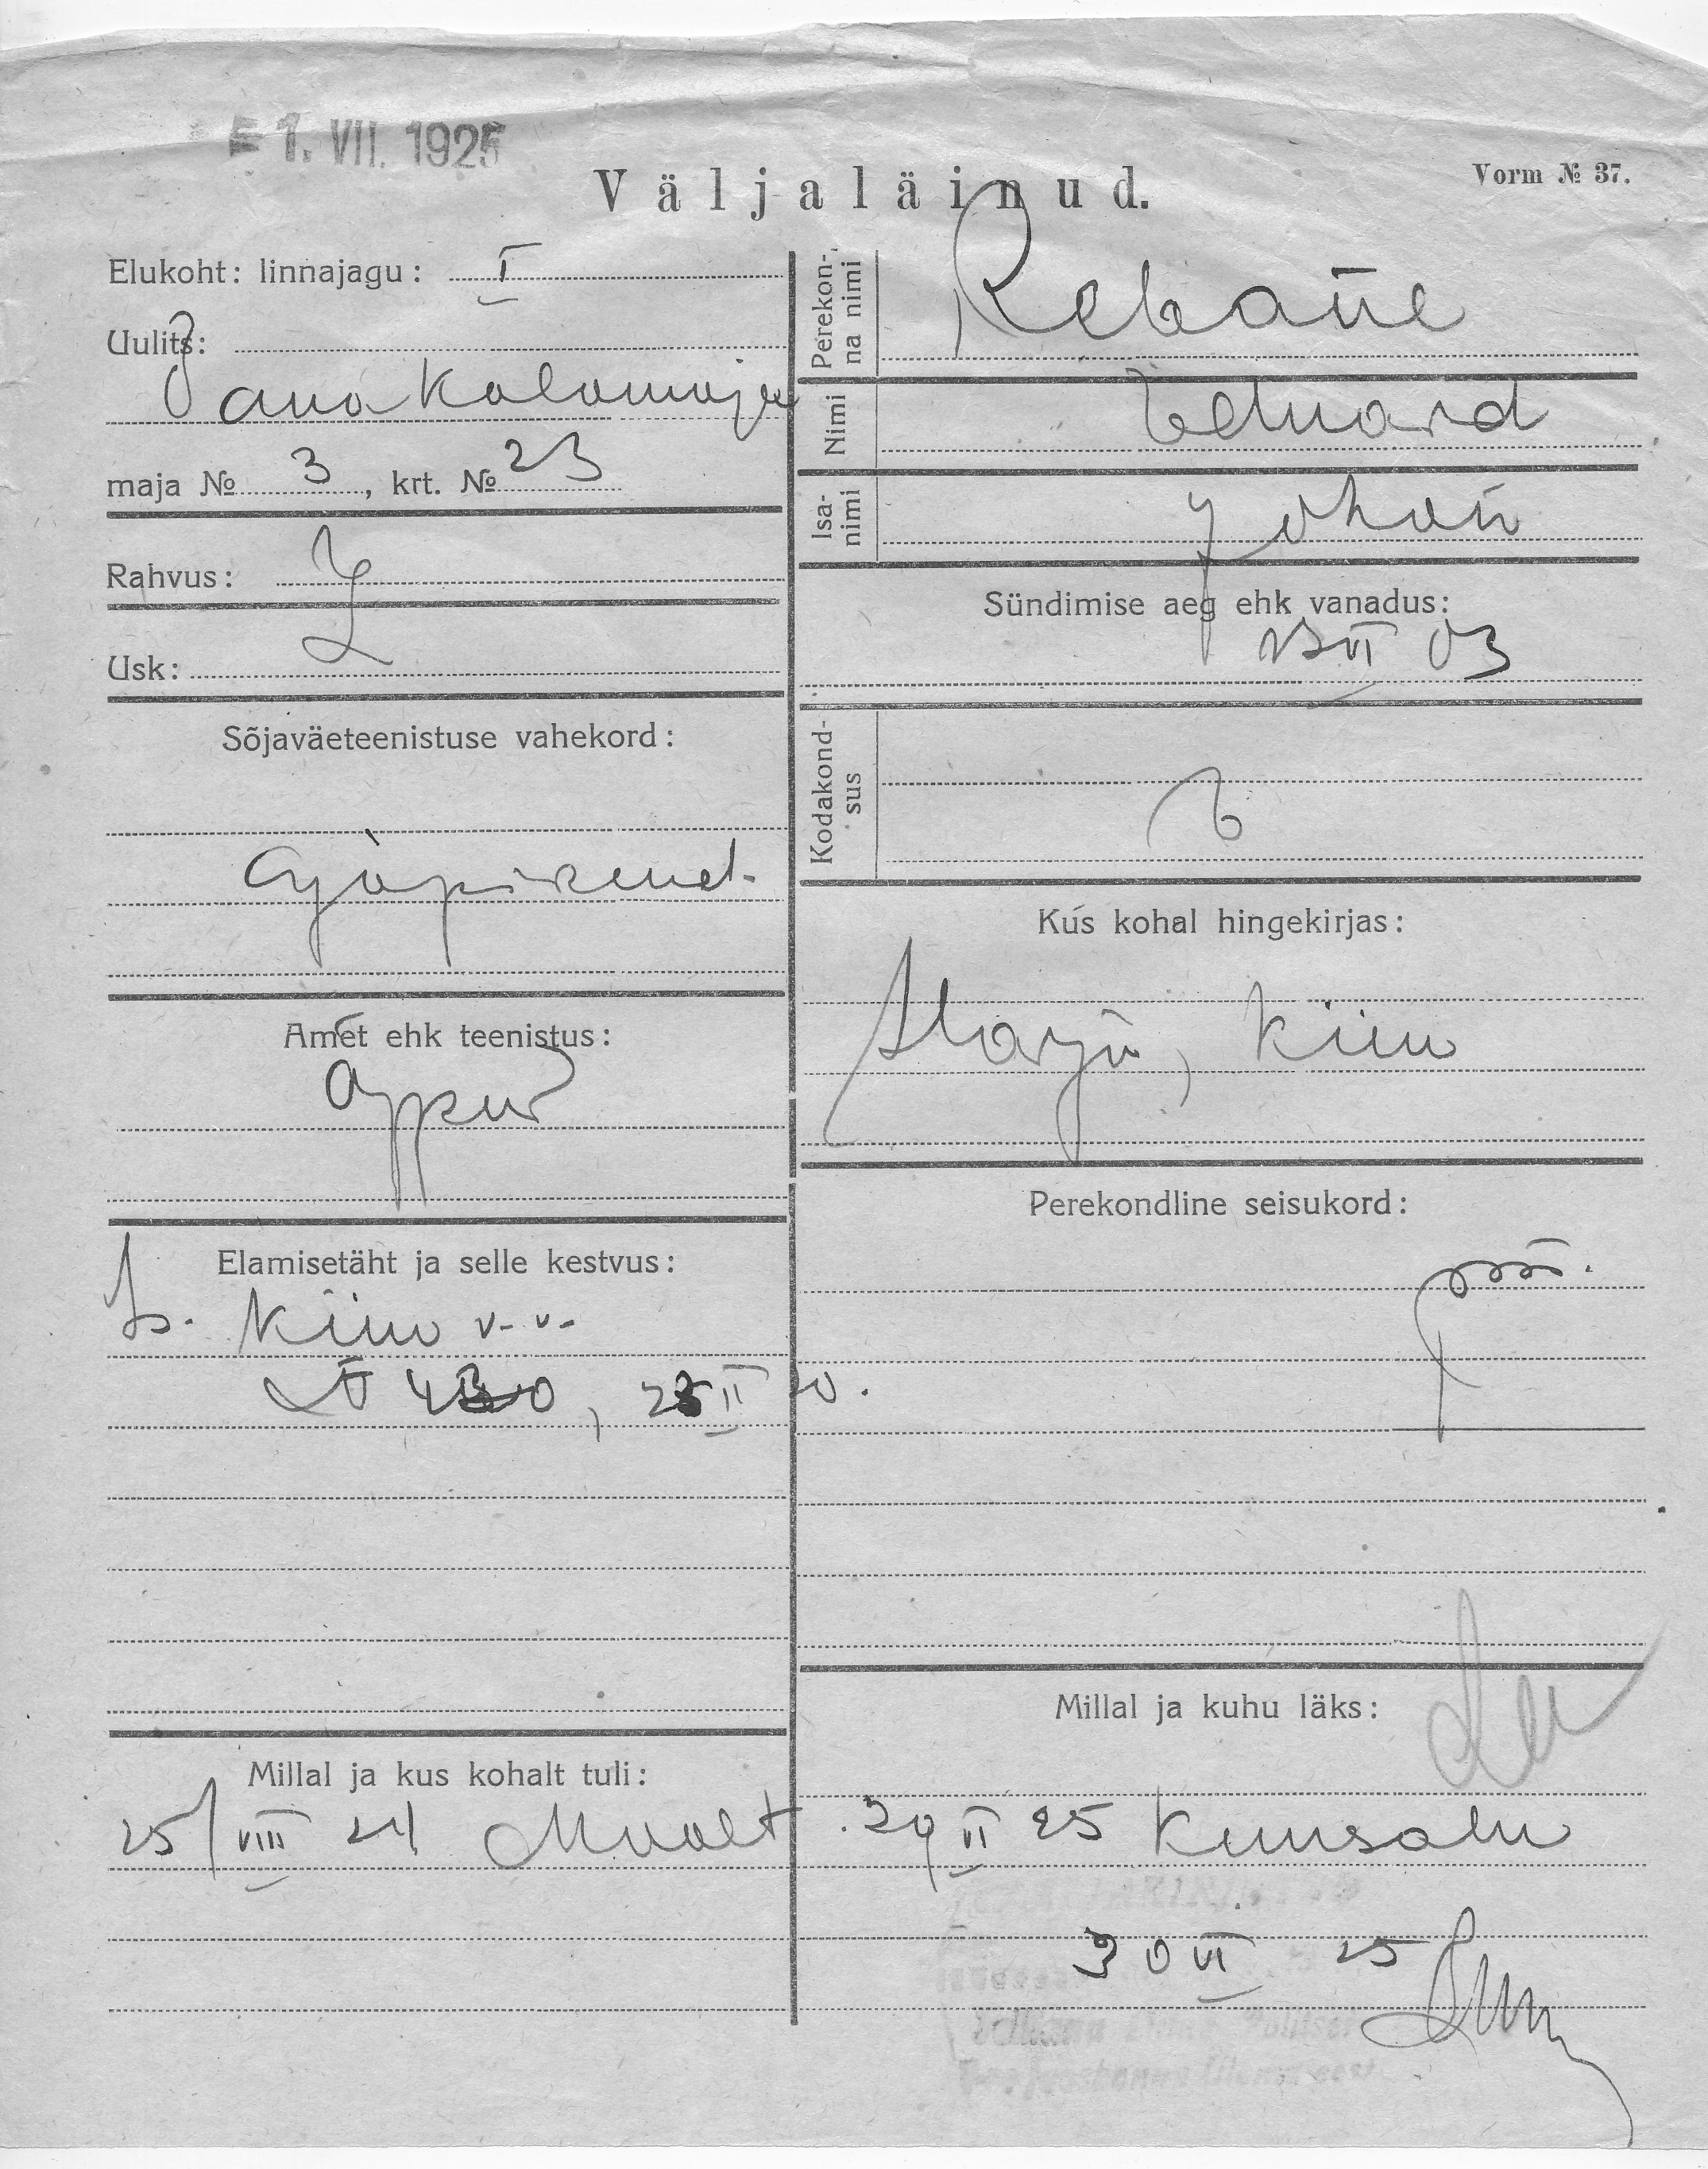 1. VII. 1925
Väljaläinud.
Vorm № 37.
Elukoht: linnajagu: I
Uulits:
Vana Kalamaja
maja № 3, krt. № 23
Rahvus: E
Usk: L
Sõjaväeteenistuse vahekord:
Ajapikend.
Amet ehk teenistus:
Õppur
Elamisetäht ja selle kestvus:
Kiiu v. v.
№ 430, II 20.
Millal ja kus kohalt tuli:
25/VIII 24 Maalt
Perekonna nimi
Rebane
Nimi
Eduard
Isanimi
Johan
Sündimise aeg ehk vanadus:
VI 03
Kodakondsus
E
Kus kohal hingekirjas:
Harju, Kiiu
Perekondline seisukord:
Millal ja kuhu läks:
29 VI 25 Kuusalu
30 VI 25